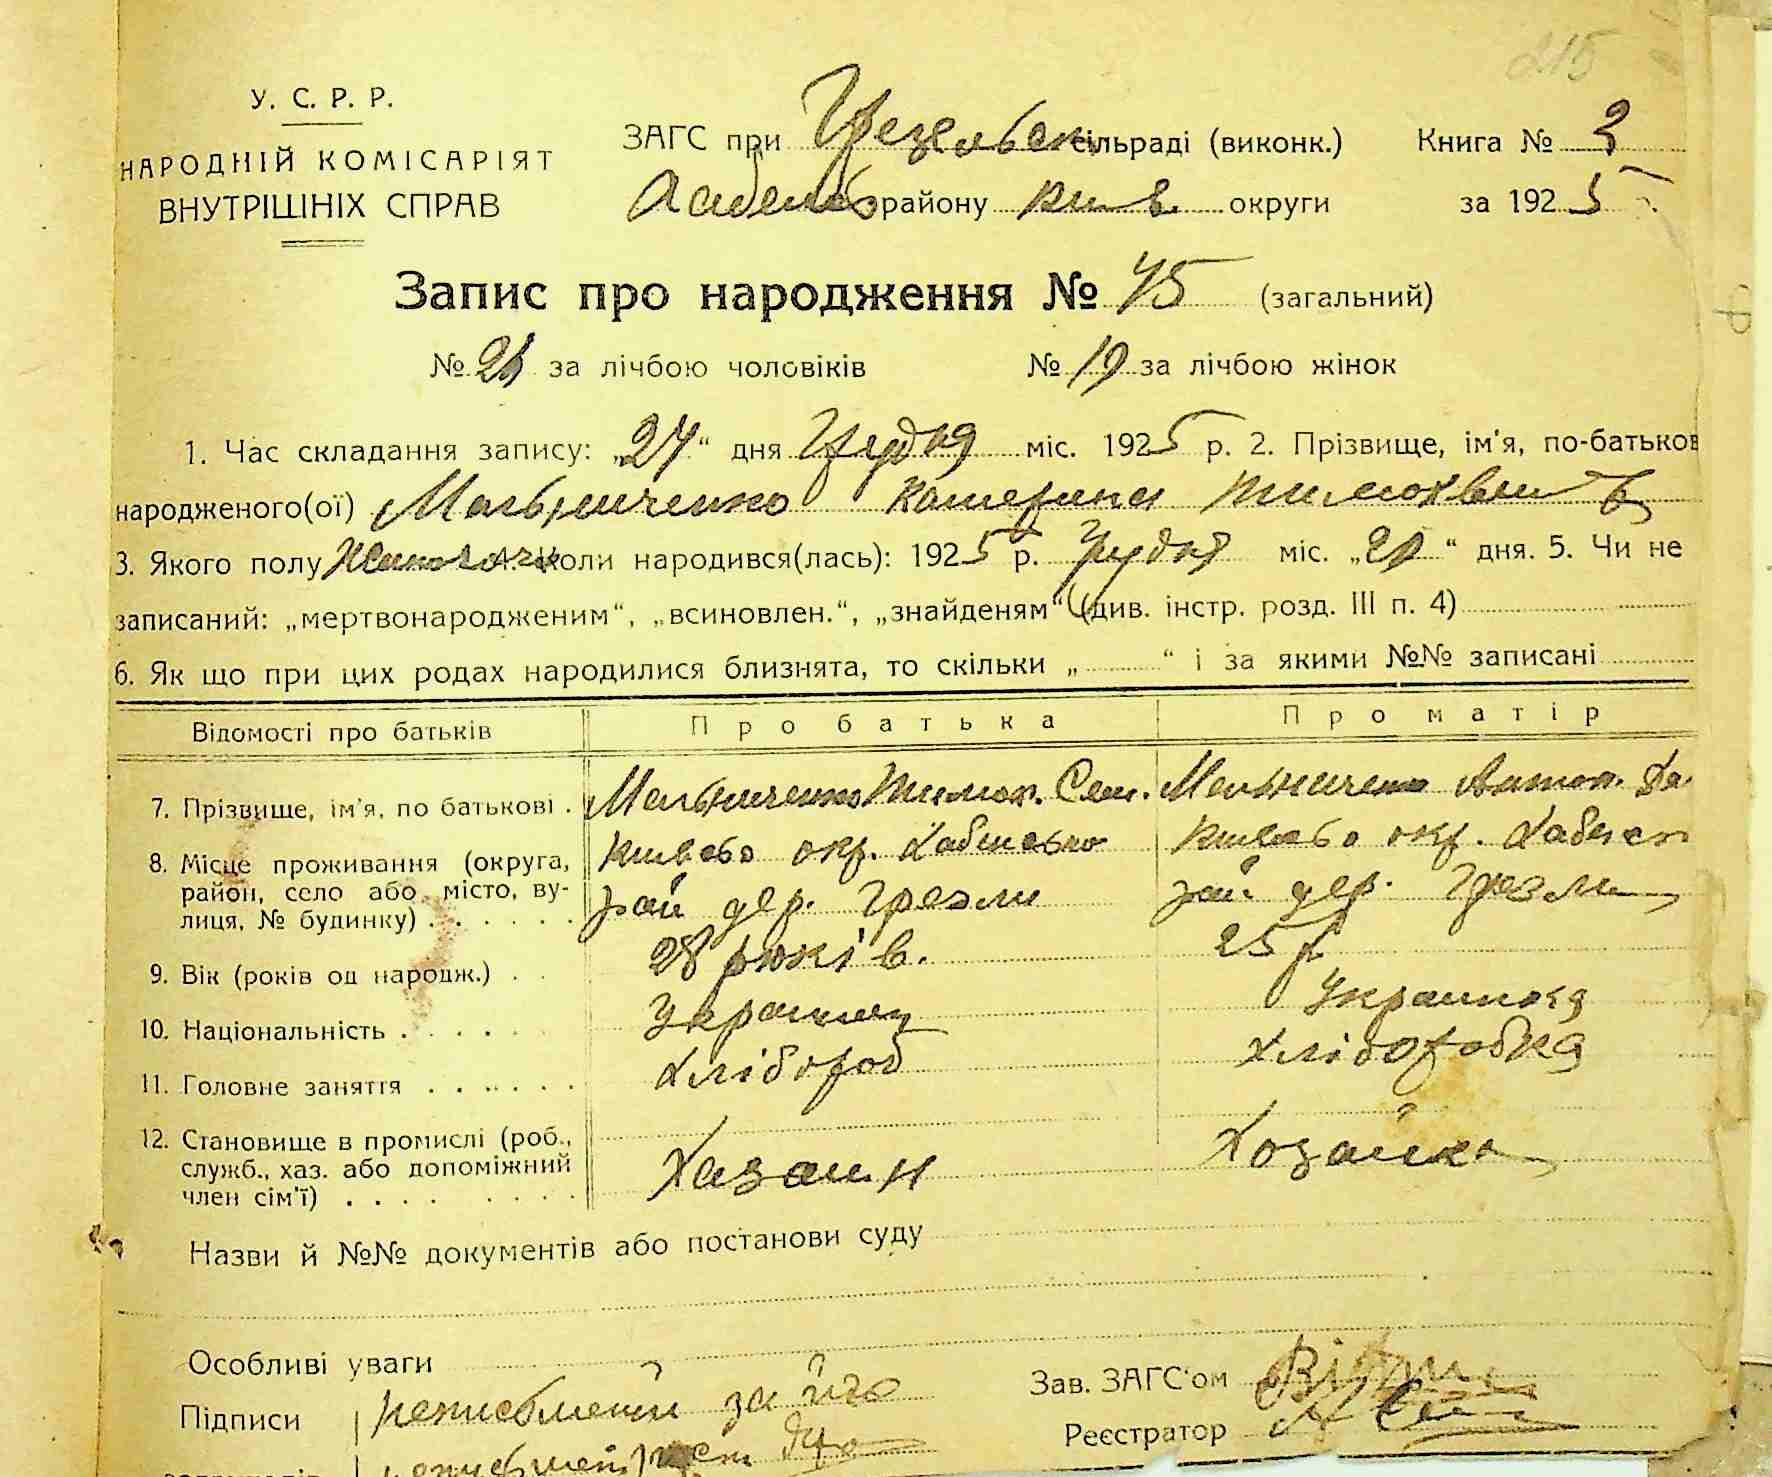 215
У. С. Р. Р.
НАРОДНІЙ КОМІСАРІЯТ
ВНУТРІШНІХ СПРАВ
ЗАГС при сільраді (виконк.) Книга № 3
району Київ. округи за 1925
Запис про народження № 45 (загальний)
№ за лічбою чоловіків № 19 за лічбою жінок
1. Час складання запису: „24“ дня Грудня міс. 1925 р. 2. Прізвище, ім'я, по-батьков
народженого(ої) Мельниченко Катерина
3. Якого полу 4. Коли народився(лась): 1925 р. Грудня міс. „ “ дня. 5. Чи не
записаний: „мертвонародженим“, „всиновлен.“, „знайденям“ (див. інстр. розд. III п. 4)
6. Як що при цих родах народилися близнята, то скільки „ “ і за якими №№ записані
Відомості про батьків Про батька Про матір
7. Прізвище, ім'я, по батькові . Мельниченко Тимох. Сем. Мельниченко Антон.
8. Місце проживання (округа, Київсько окр. Хабенсько Київсько окр. Хабенс
район, село або місто, ву- рай дер. Грезли рай дер. Грезли
лиця, № будинку) . . . . . .
9. Вік (років од народж.) . . 28 років. 25 р
10. Національність . . . . . Украинец Украинка
11. Головне заняття . . . . . . Хлібороб Хліборобка
12. Становище в промислі (роб.,
служб., хаз. або допоміжний Хазаин Хозайка
член сім'ї) . . . . . . . . .
Назви й №№ документів або постанови суду
Особливі уваги
Зав. ЗАГС'ом
Підписи неписьмений за його
Реєстратор